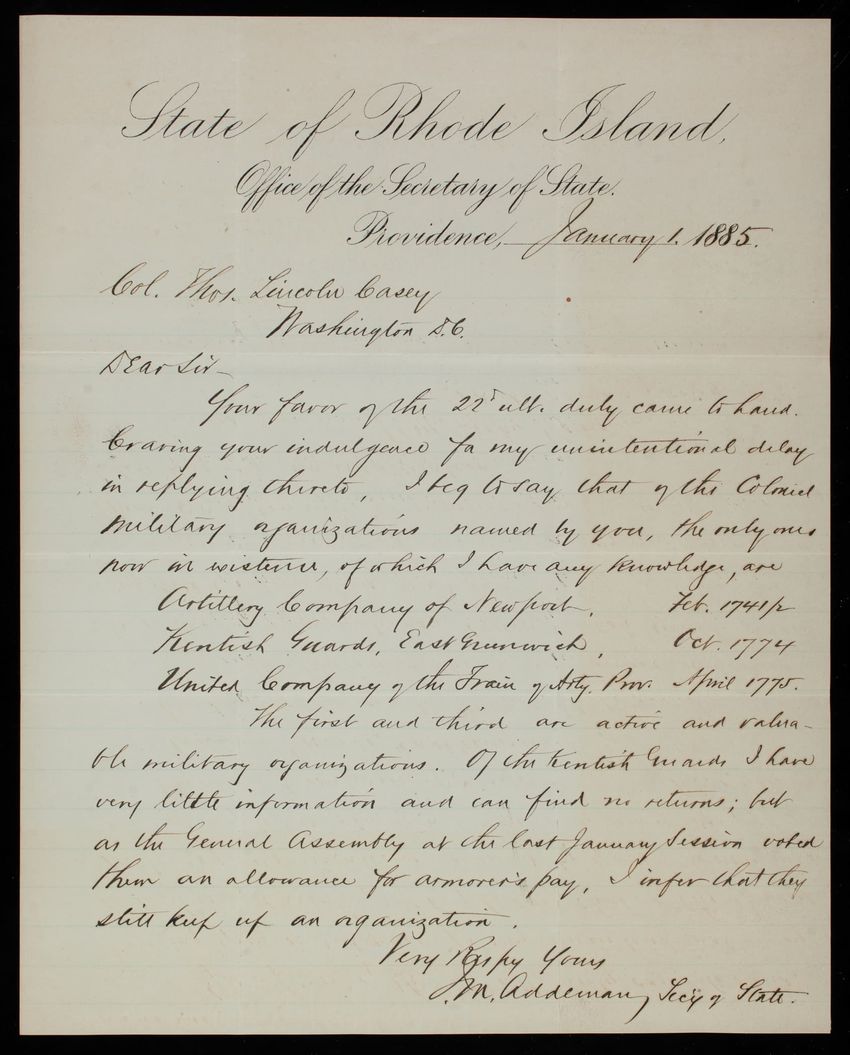 State of Rhode Island,
Office of the Secretary of State.
Providence, January 1. 1885.
Col. Thos. Lincoln Casey
Washington D.C.
Dear Sir—
Your favor of the 22d ult. duly came to hand.
Craving your indulgence for my unintentional delay
in replying thereto, I beg to say that of the Colonial
military organizations named by you, the only ones
now in existence, of which I have any knowledge, are
Artillery Company of Newport, Feb. 1741/2
Kentish Guards, East Greenwich, Oct. 1774
United Company of the Train of Arty. Prov. April 1775.
The first and third are active and valua-
ble military organizations. Of the Kentish Guards I have
very little information and can find no returns; but
as the General Assembly at the last January Session voted
them an allowance for armorer's pay, I infer that they
still keep up an organization.
Very Respy Yours
J. M. Addeman, Secy of State.